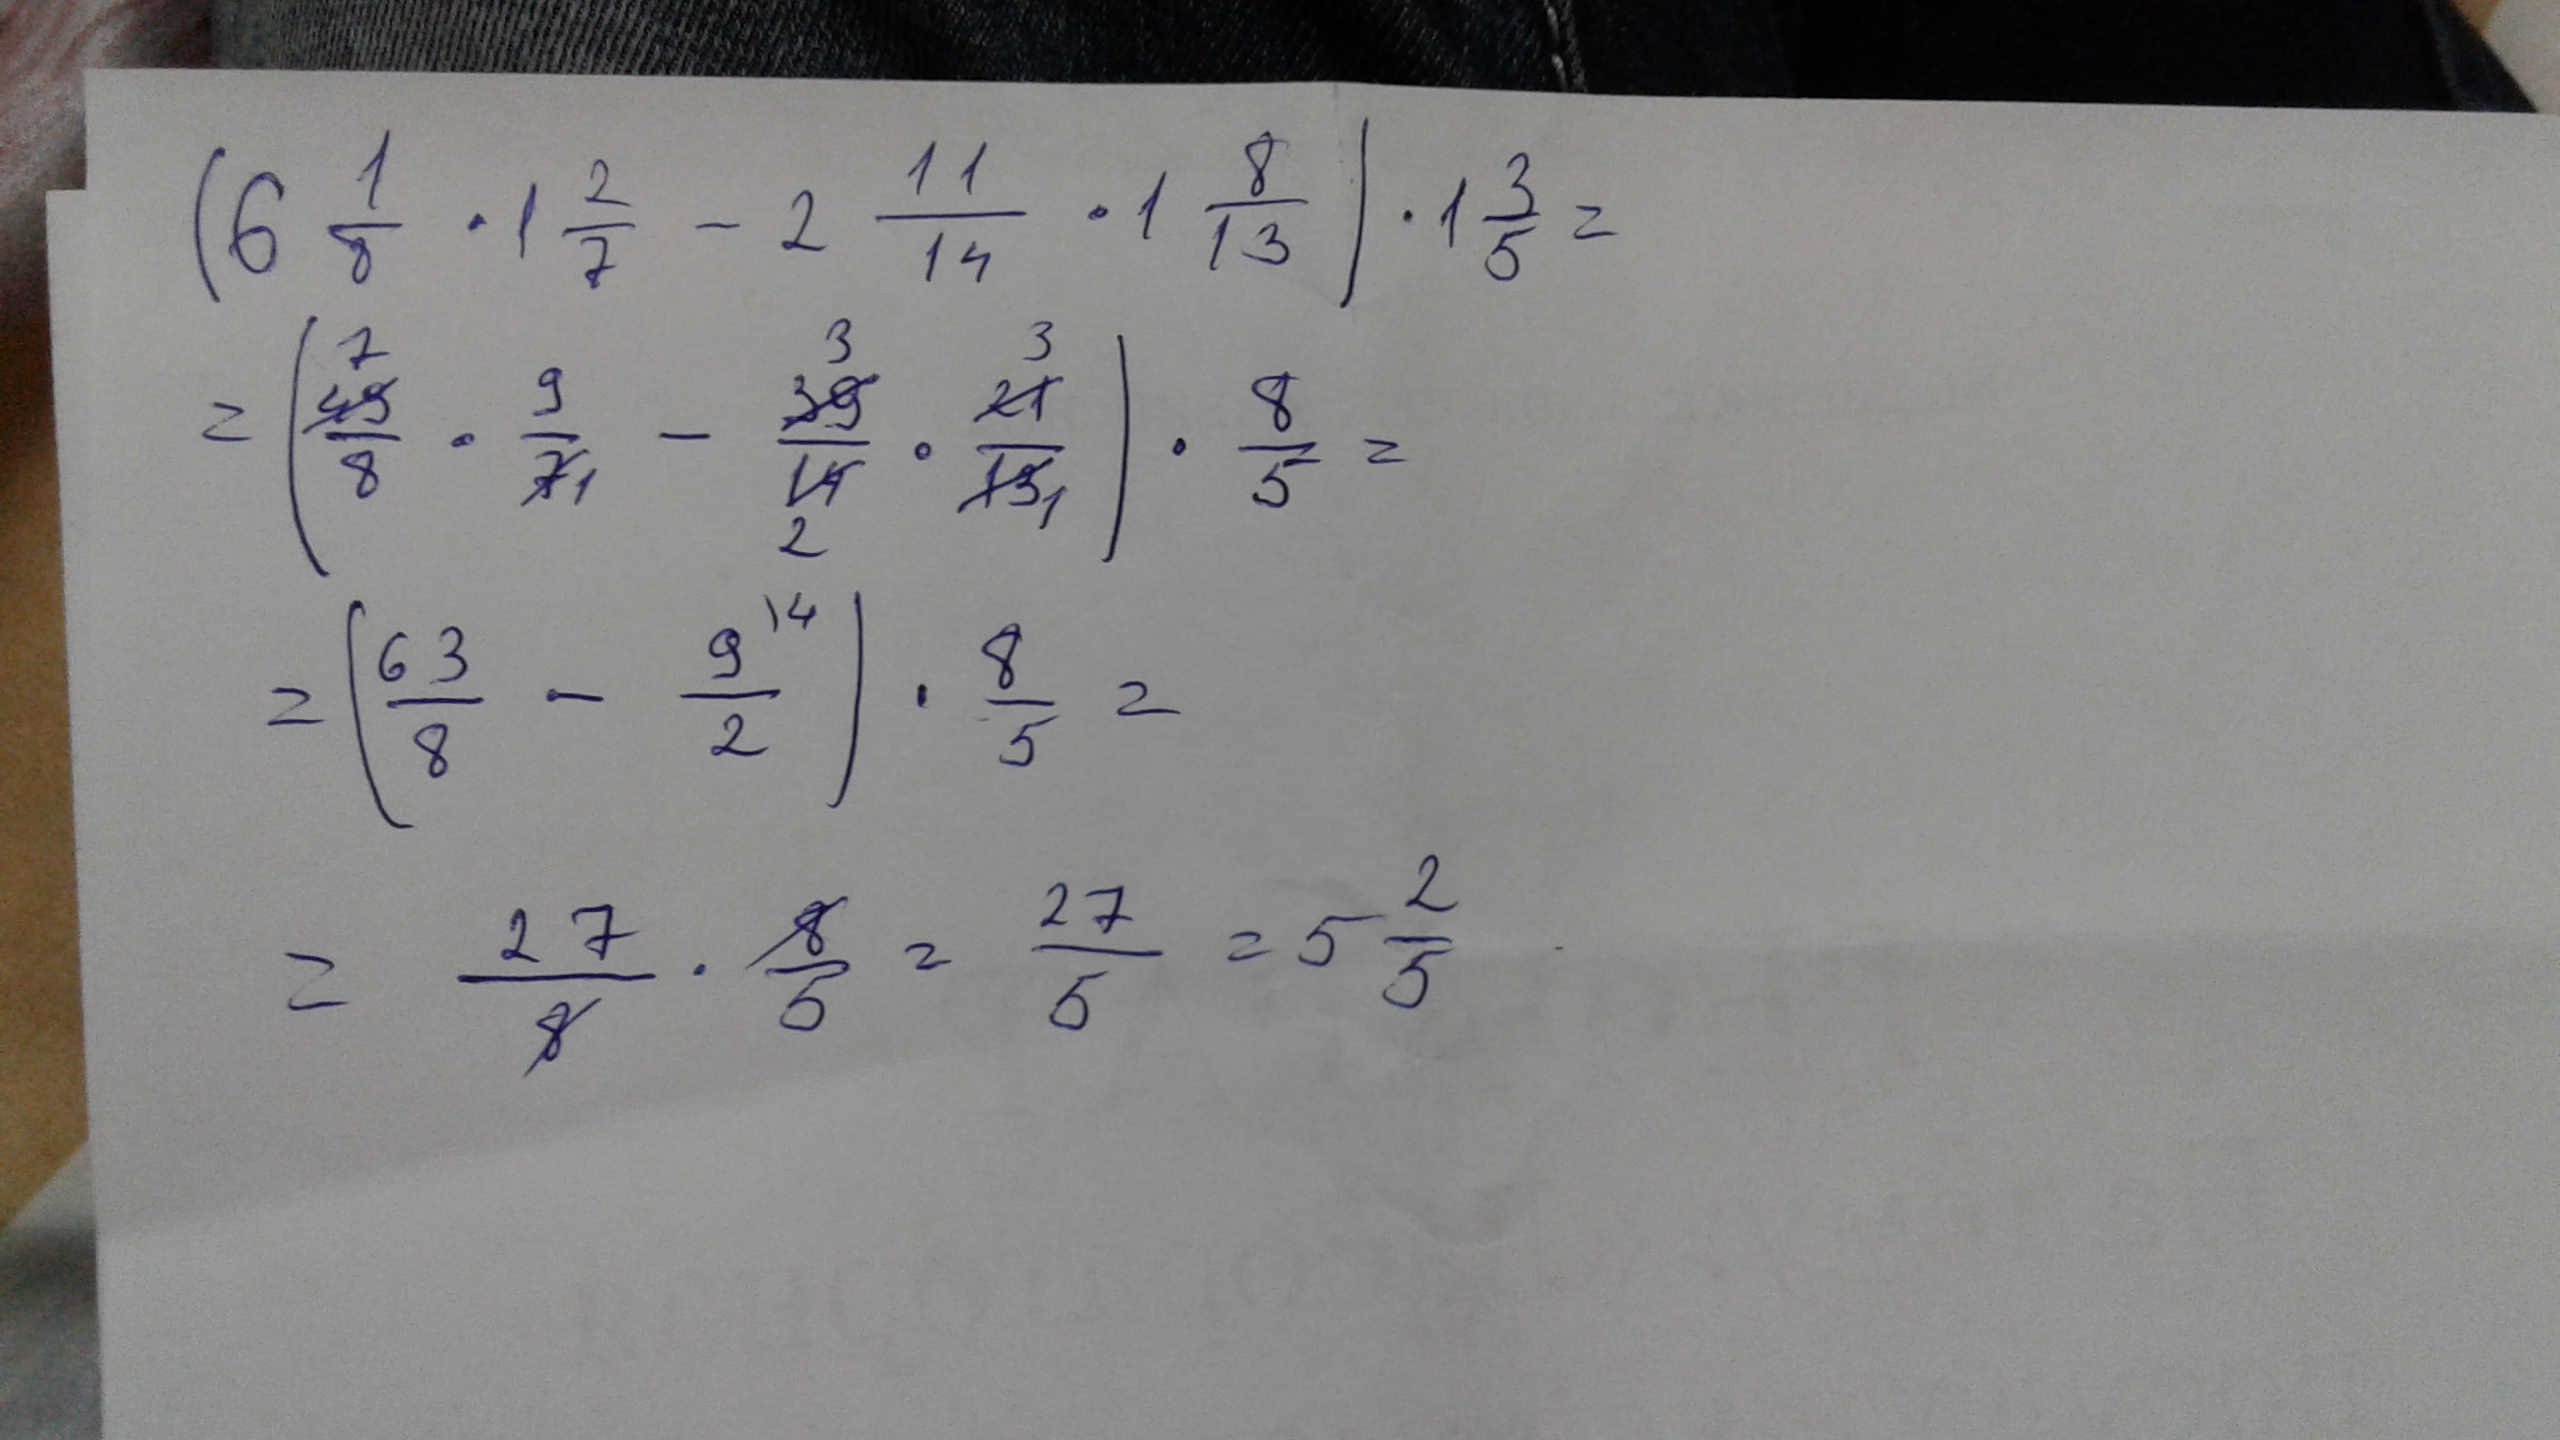 (6 1/8 · 1 2/7 - 2 11/14 · 1 8/13) · 1 3/5 =
= (49/8 7 · 9/7 1 - 39/14 3 2 · 21/13 3 1) · 8/5 =
= (63/8 - 9/2 \4) · 8/5 =
= 27/8 · 8/5 = 27/5 = 5 2/5